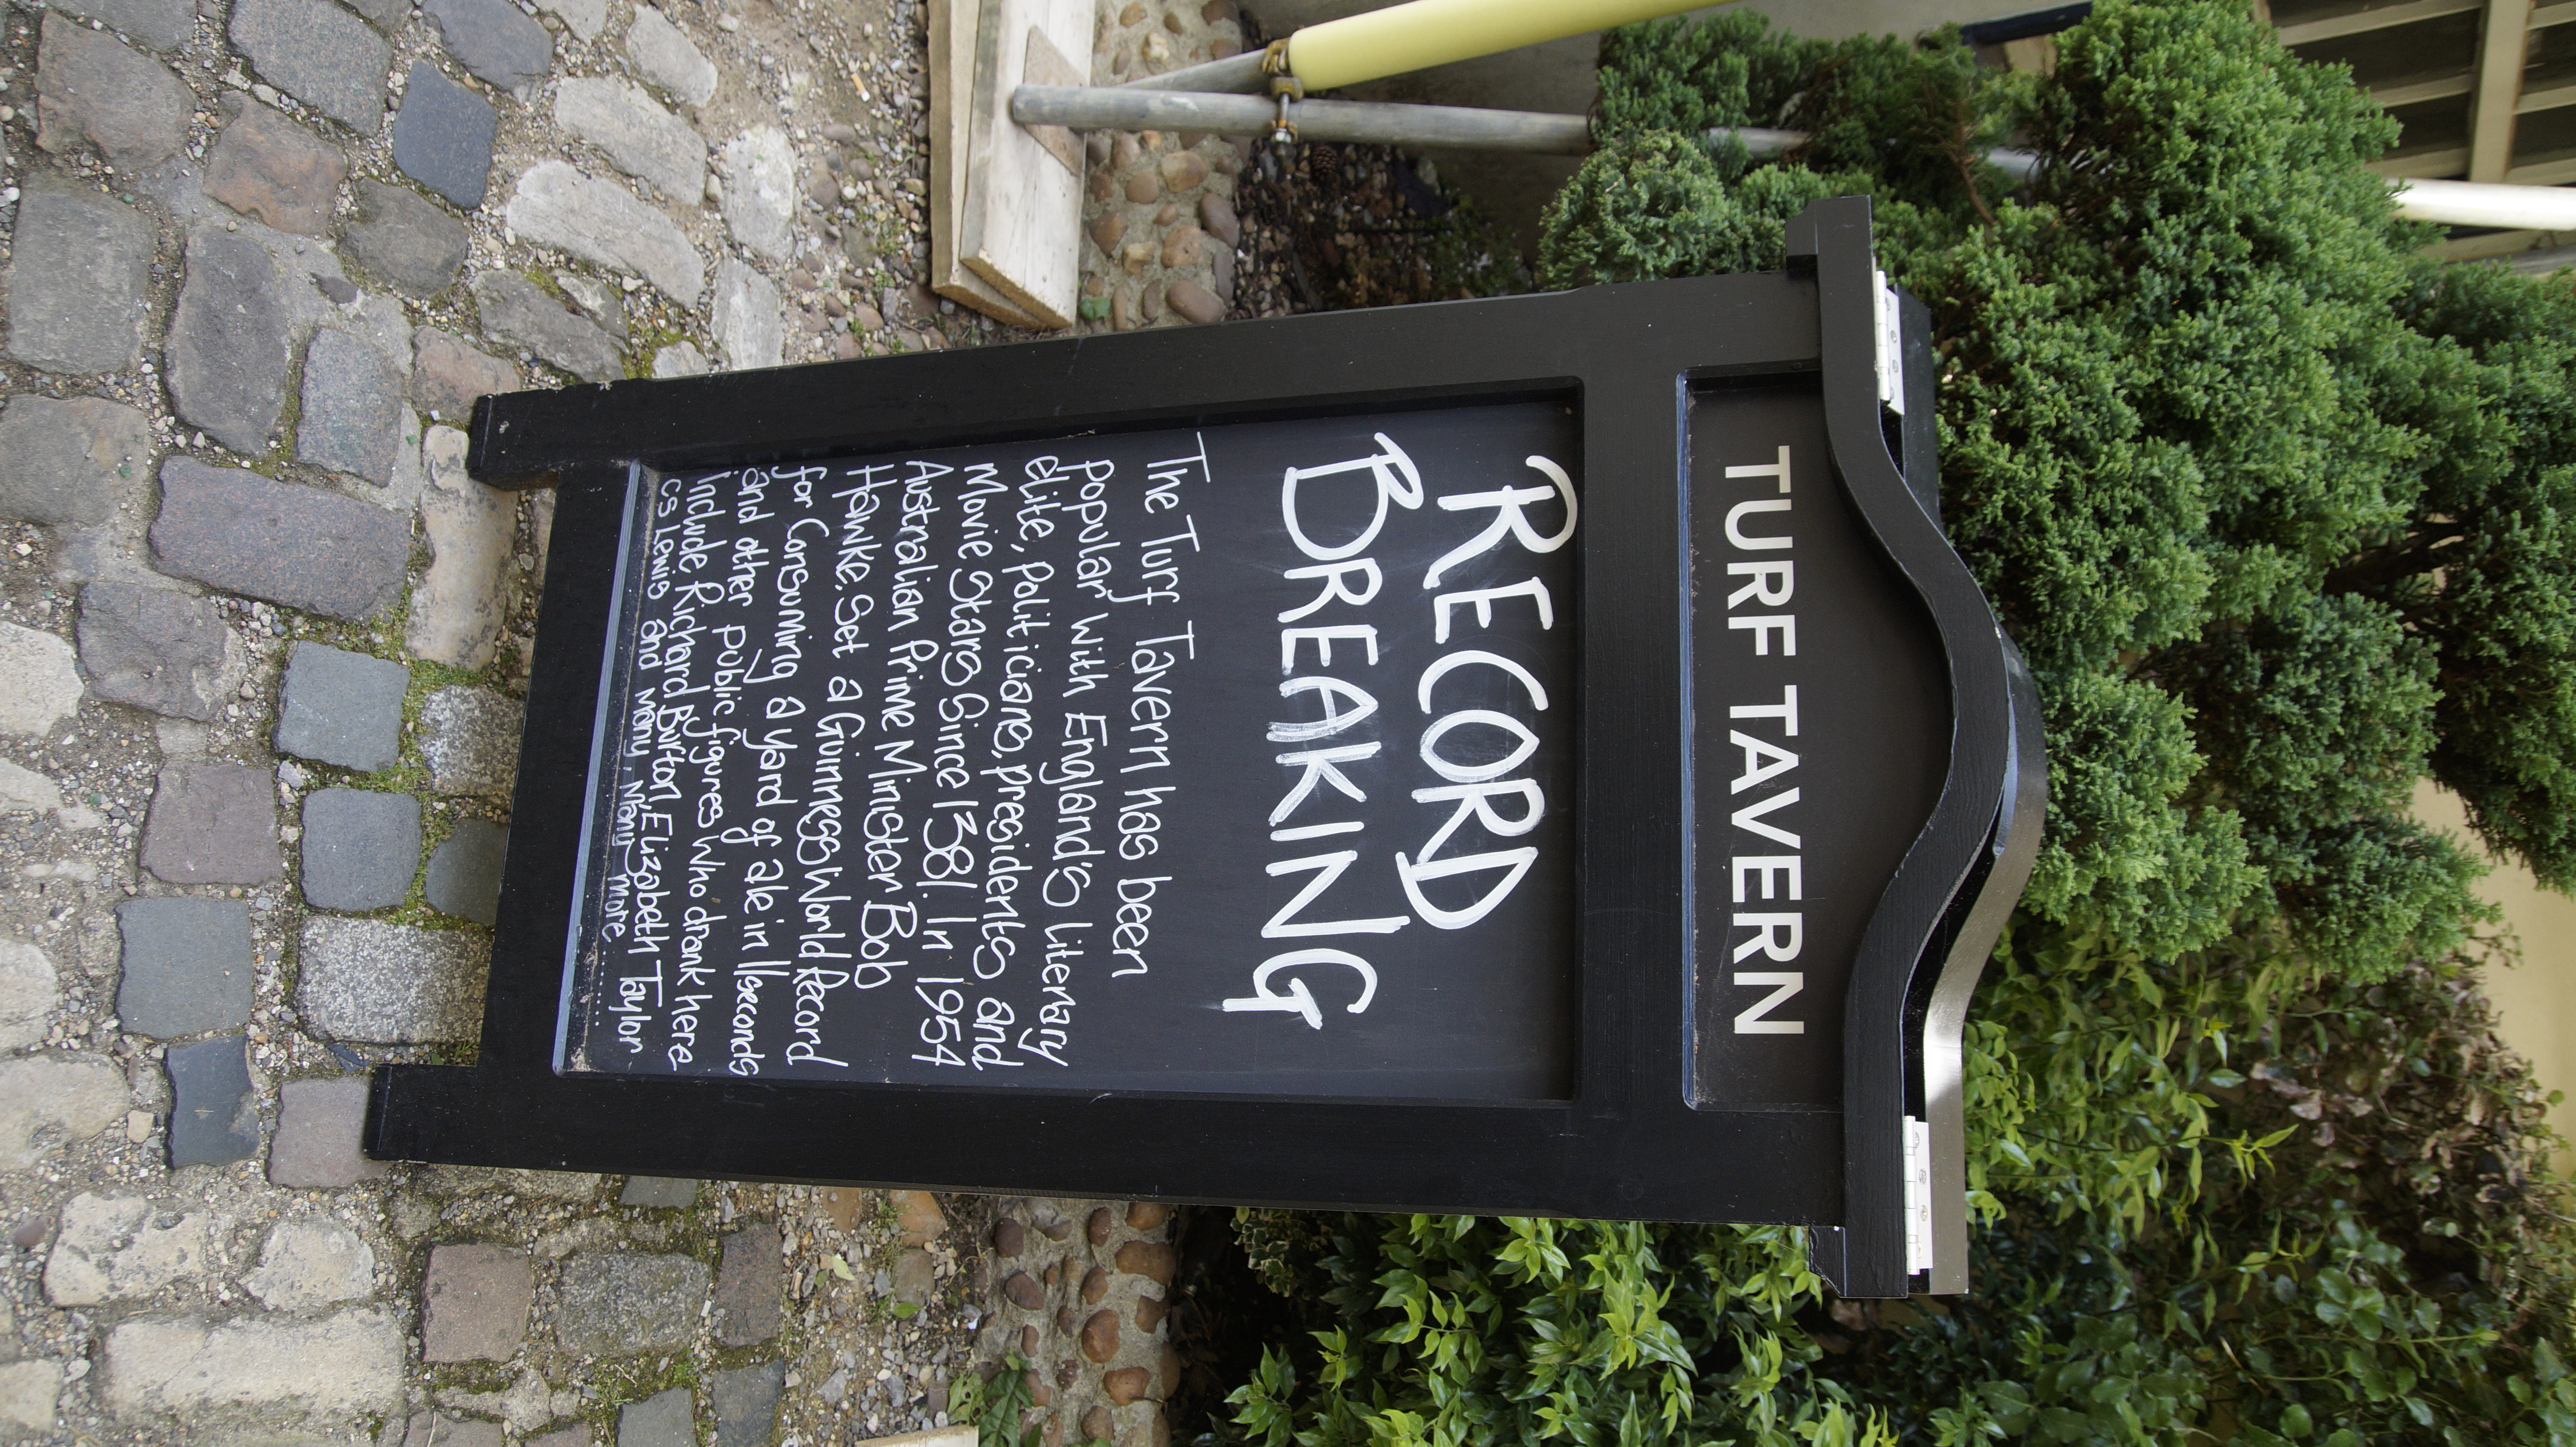 TURF TAVERN
RECORD
BREAKING
The Turf Tavern has been
popular with England's literary
elite, politicians, presidents and
Movie stars since 1381. In 1954
Australian Prime Minister Bob
Hawke. Set a Guinness World Record
for Consuming a yard of ale in 11seconds
and other public figures who drank here
include Richard Burton, Elizabeth Taylor
CS Lewis and many, many more.......